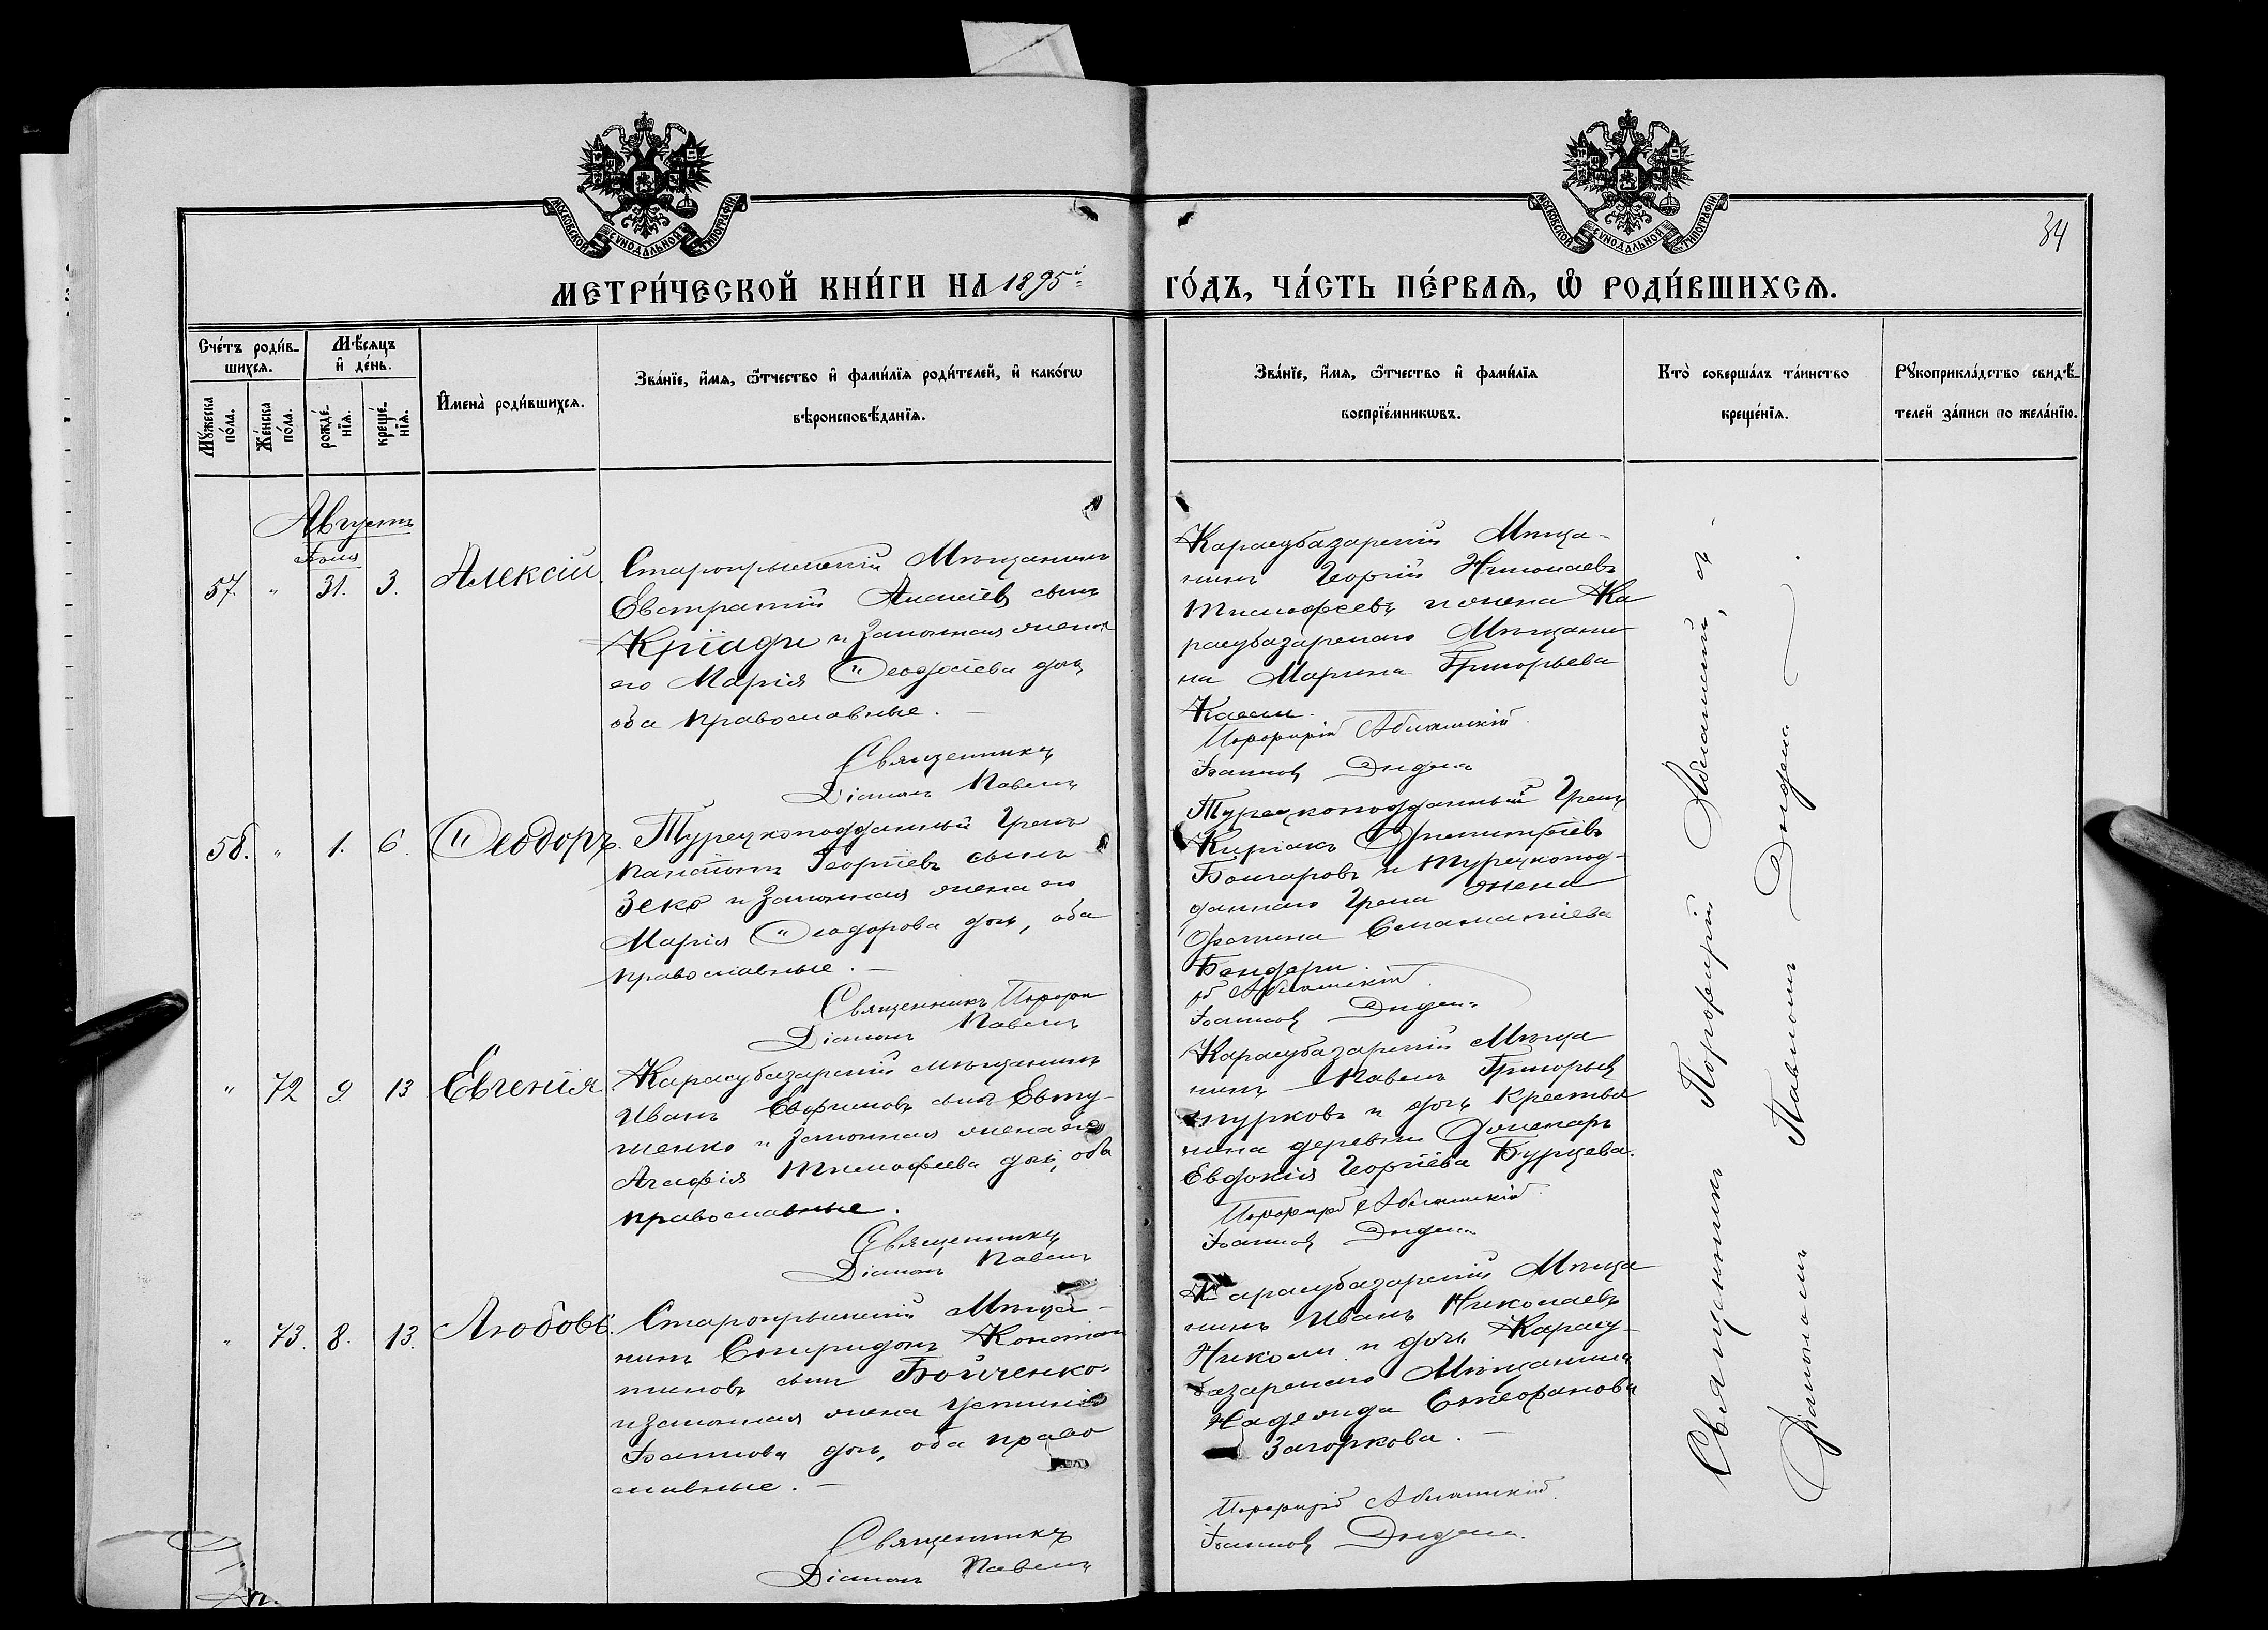 МОСКОВСКОЙ СѴНОДАЛЬНОЙ ТИПОГРАФІИ
МОСКОВСКОЙ СѴНОДАЛЬНОЙ ТИПОГРАФІИ
34
МЕТРИ́ЧЕСКОЙ КНИ́ГИ НА 1895й
ГО́ДЪ, ЧА́СТЬ ПЕ́РВАѦ, Ѡ РОДИ́ВШИХСѦ.
Сче́тъ роди́в-
шихсѧ.
Мѣ́сѧцъ
и҆ де́нь.
Мꙋ́жеска по́ла.
Же́нска по́ла.
рожде́-
нїѧ.
креще́-
нїѧ.
И҆мена̀ роди́вшихсѧ.
Зва́нїе, и҆́мѧ, ѻ҆́тчество и҆ фами́лїѧ роди́телей, и҆ како́гѡ
вѣроисповѣ́данїѧ.
Зва́нїе, и҆́мѧ, ѻ҆́тчество и҆ фами́лїѧ
воспрїе́мникѡвъ.
Кто̀ соверша́лъ та́инство
креще́нїѧ.
Рꙋкоприкла́дство свидѣ́-
телей за́писи по жела́нїю.
Августъ
Іюля
57. " 31. 3. Алексій
Старокрымскій Мѣщанинъ
Евстратій Алексіевъ сынъ
Кріади и законная жена
его Марія Ѳеодосіева дочь
оба православные. —
Священникъ
Діаконъ Павелъ
Карасубазарскій Мѣща-
нинъ Георгій Николаевъ
Тимофеевъ и жена Ка
расубазарскаго Мѣщани
на Марина Григорьева
Порфирій Абламскій
Іоанновъ Дидена
58. " 1. 6. Ѳеодоръ.
Турецкоподданный Грекъ
Панаіотъ Георгіевъ сынъ
Зеко и законная жена его
Марія Ѳеодорова дочь, оба
православные. —
Священникъ Порфи
Діаконъ Павелъ
Турецкоподданный Грекъ
Киріакъ Димитріевъ
Бончаровъ и турецкопод-
даннаго Грека жена
Фотина Стаматіева
Бендери.
рій Абламскій
Іоанновъ Дидена
" 72 9. 13 Евгенія
Карасубазарскій мѣщанинъ
Иванъ Евфимовъ сынъ Евту-
шенко и законная жена его
Агафія Тимофеева дочь, оба
православные.
Священникъ
Діаконъ Павелъ
Карасубазарскій Мѣща
нинъ Павелъ Григорьевъ
турковъ и дочь Крестья
нина деревни
Евдокія Георгіева Бурцева.
Порфирій Абламскій
Іоанновъ Дидена
" 73. 8. 13. Любовь.
Старокрымскій Мѣща-
нинъ Спиридонъ Констан
тиновъ сынъ Бойченко
и законная жена
Іоаннова дочь, оба право
славные. —
Священникъ
Діаконъ Павелъ
Карасубазарскій Мѣща
нинъ Иванъ Николаевъ
Николи и дочь Карасу-
базарскаго Мѣщанина
Надежда Стефанова
Загоркова. —
Порфирій Абламскій.
Іоанновъ Дидена.
Священникъ Порфирій Абламскій, съ
Діакономъ Павломъ Дидена.